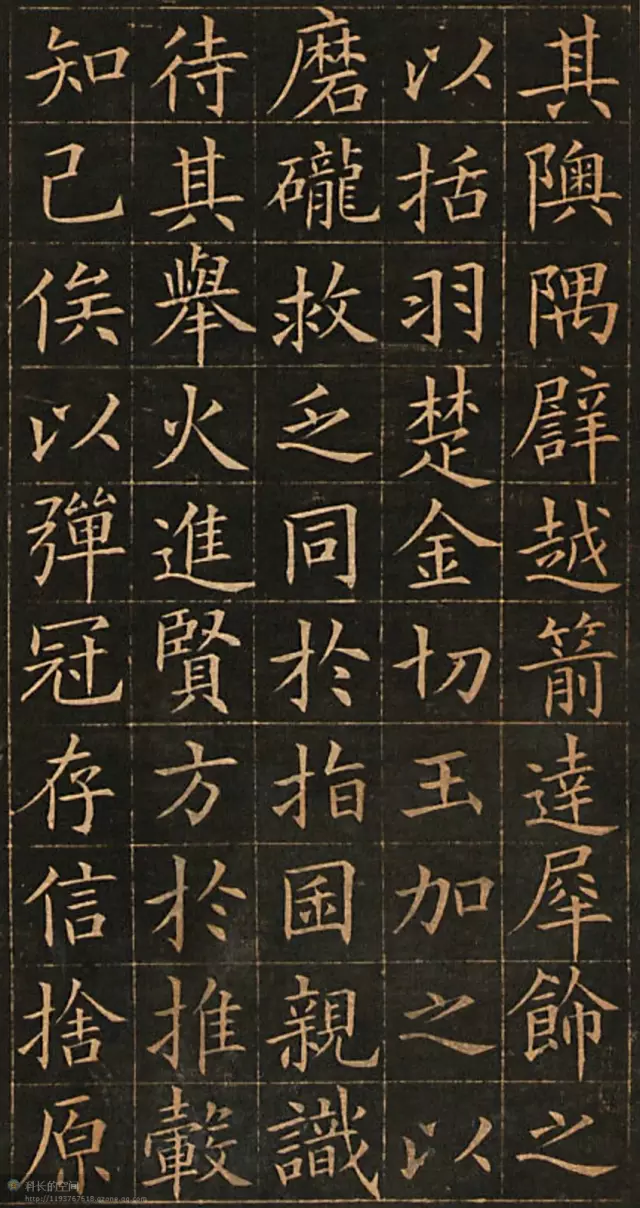 其隩隅譬越箭達犀飾之
以括羽楚金切玉加之以
磨礲救乏同於指囷親識
待其舉火進賢方於推轂
知己俟以彈冠存信捨原
科长的空间
http://1193767618.qzone.qq.com